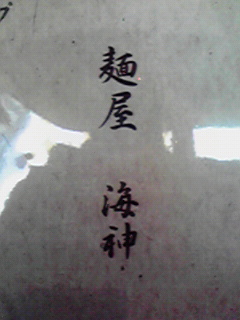 麺屋 海神
プ